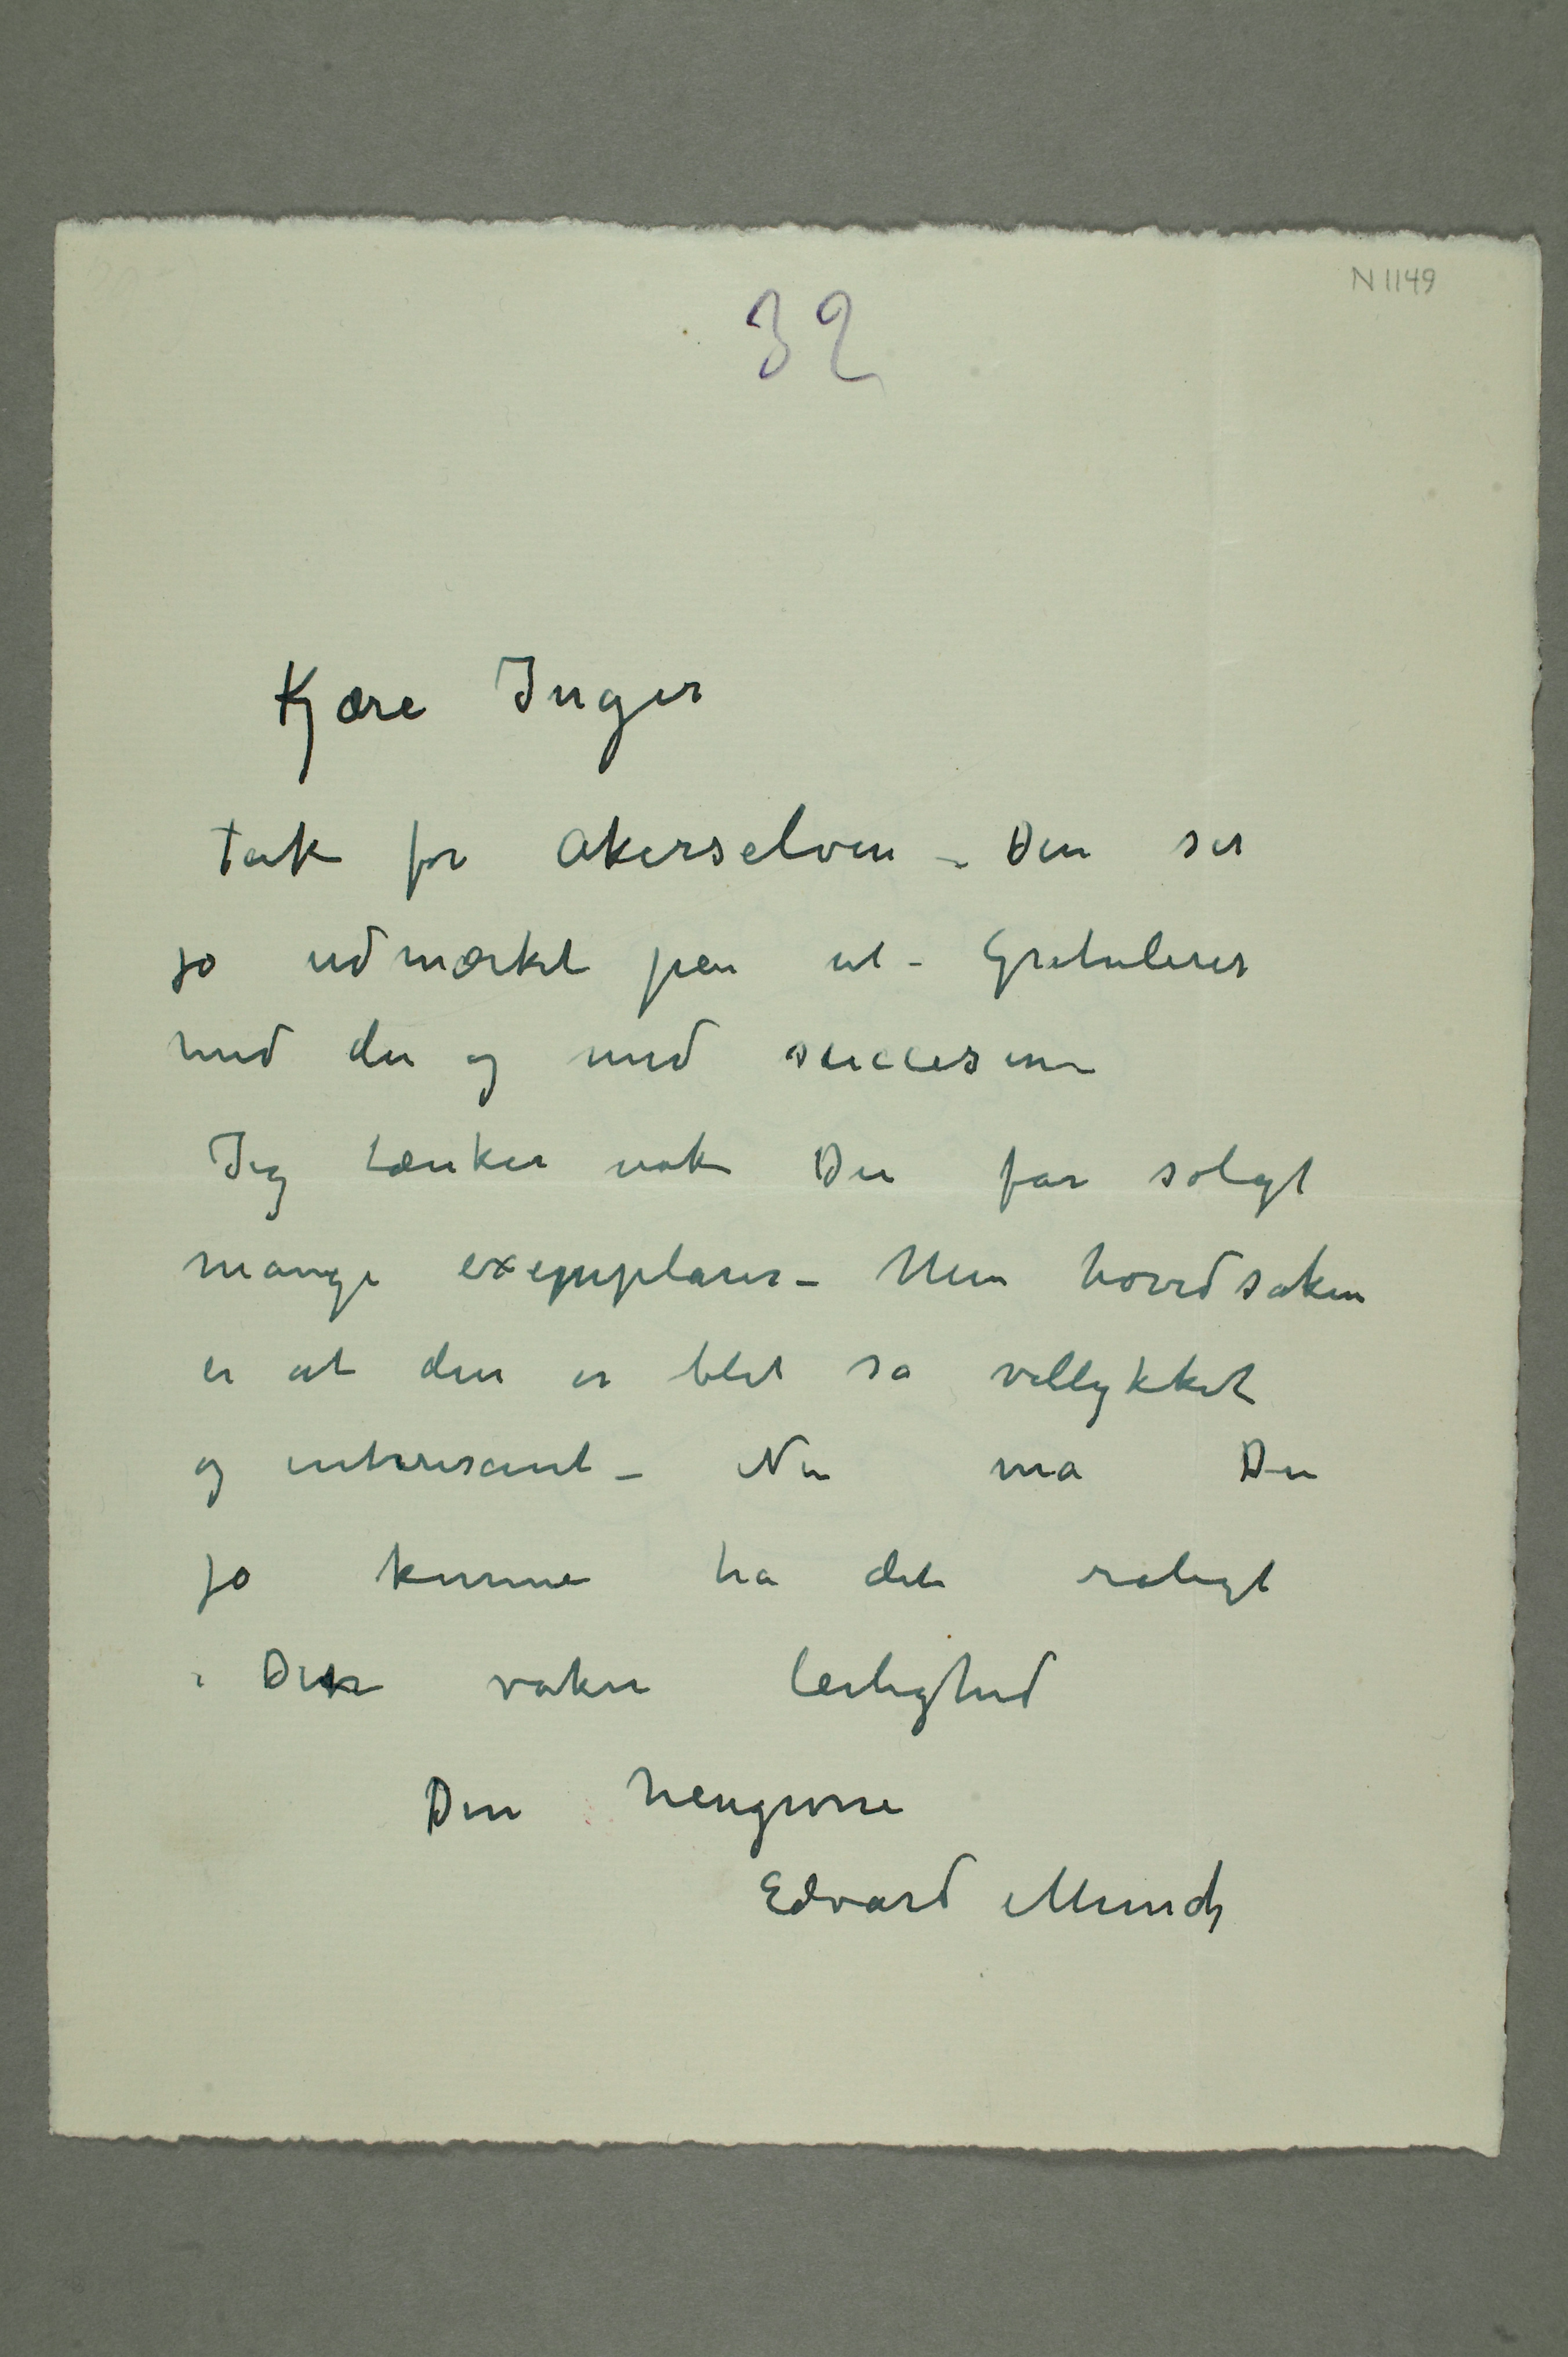 N 1149
32
Kjære Inger
Tak for Akerselven – Den ser
jo udmærket pen ut – Gratulerer
med den og med succesen
Jeg tænker nok Du far solgt
mange exemplarer – Men hovedsaken
er at den er blet så vellykket
og interesant – Nu må Du
jo kunne ha det roligt
i Din vakre leilighed
Din hengivne
Edvard Munch